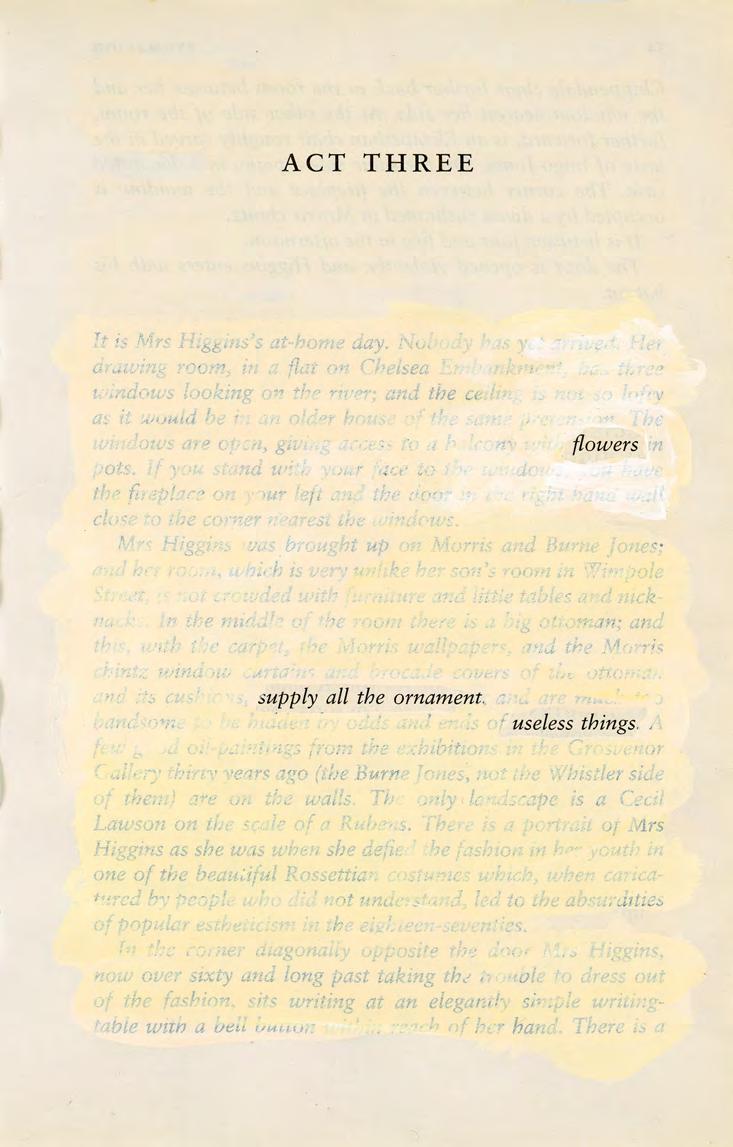 ACT THREE
It is Mrs Higgins's at-home day. Nobody has yet arrived. Her
drawing room, in a flat on Chelsea Embankment, has three
windows looking on the river; and the ceiling is not so lofty
as it would be in an older house of the same pretension. The
windows are open, giving access to a balcony with flowers in
pots. If you stand with your face to the windows, you have
the fireplace on your left and the door in the right hand wall
close to the corner nearest the windows.
Mrs Higgins was brought up on Morris and Burne Jones;
and her room, which is very unlike her son's room in Wimpole
Street, is not crowded with furniture and little tables and nick-
nacks. In the middle of the room there is a big ottoman; and
this, with the carpet, the Morris wallpapers, and the Morris
chintz window curtains and brocade covers of the ottoman
and its cushions, supply all the ornament, and are much too
handsome to be hidden by odds and ends of useless things. A
few good oil-paintings from the exhibitions in the Grosvenor
Gallery thirty years ago (the Burne Jones, not the Whistler side
of them) are on the walls. The only landscape is a Cecil
Lawson on the scale of a Rubens. There is a portrait of Mrs
Higgins as she was when she defied the fashion in her youth in
one of the beautiful Rossettian costumes which, when carica-
tured by people who did not understand, led to the absurdities
of popular estheticism in the eighteen-seventies.
In the corner diagonally opposite the door Mrs Higgins,
now over sixty and long past taking the trouble to dress out
of the fashion, sits writing at an elegantly simple writing-
table with a bell button within reach of her hand. There is a